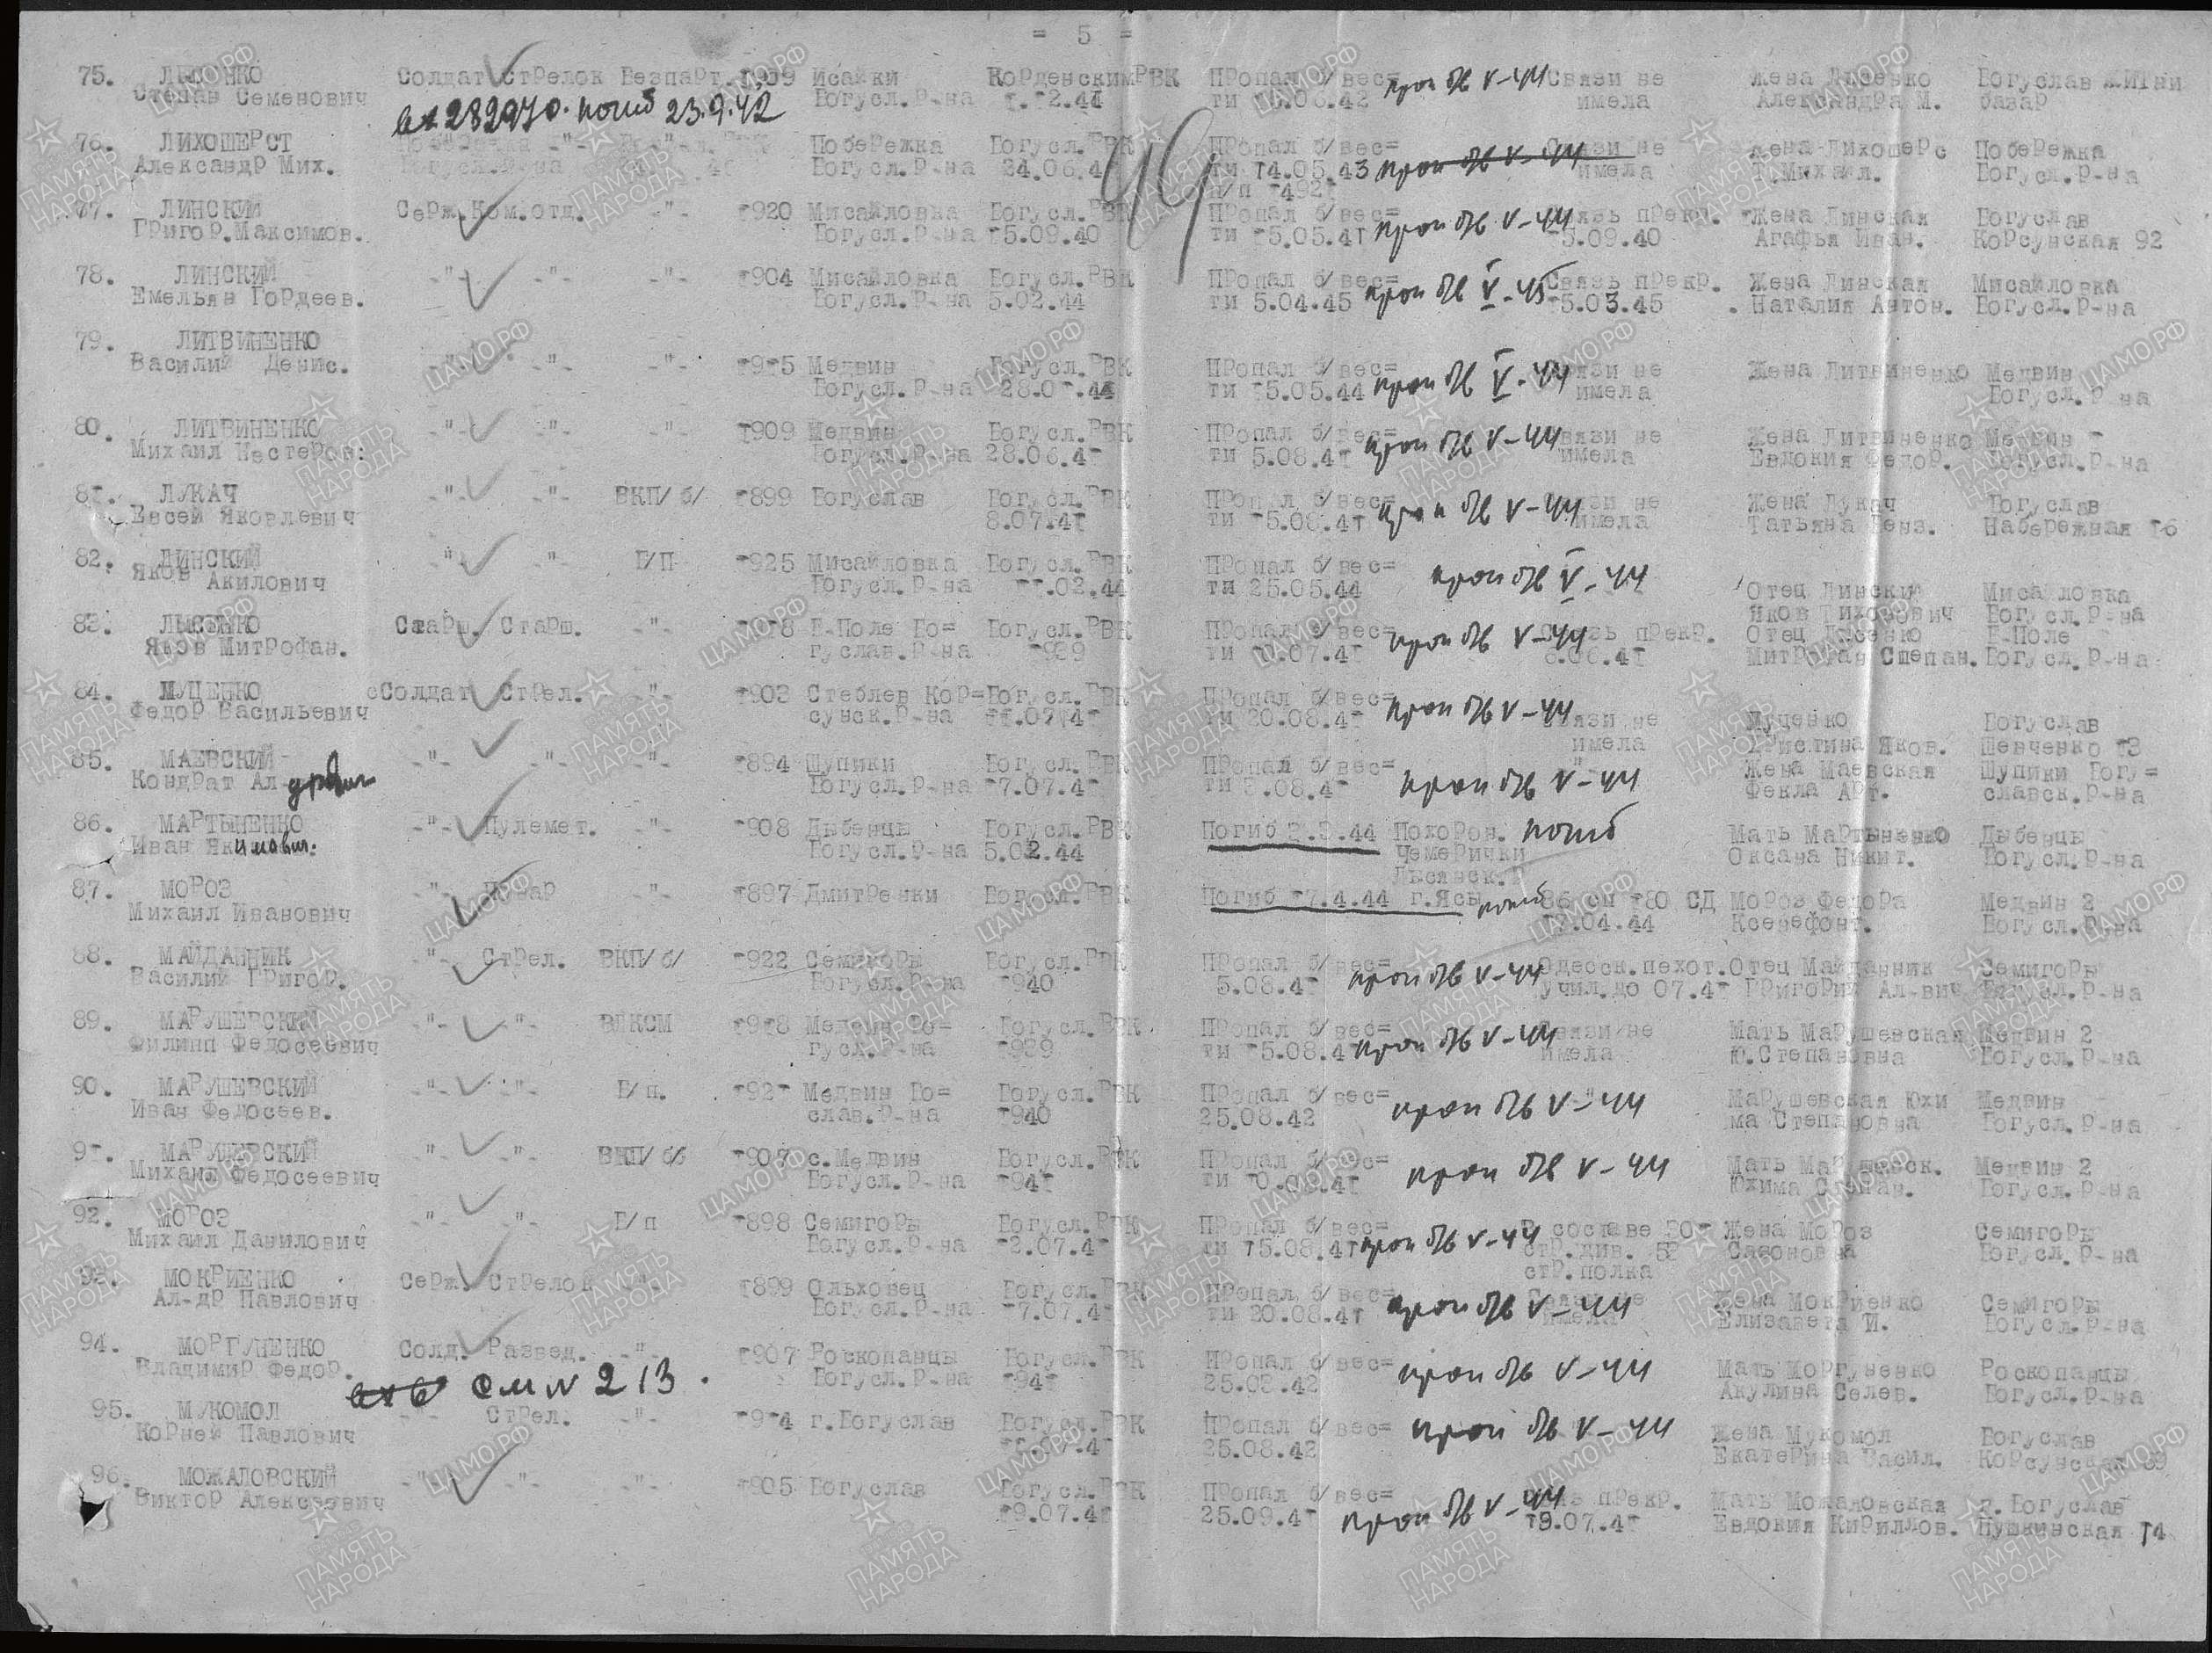 = 5 =
75. ЛЫСЕНКО Солдат Стрелок Безпарт. 1909 Исайки Корденским РВК Пропал б/вес= проп б/в V-44 Связи не Жена Лысенко Богуслав Житни
Степан Семенович Богусл.Р-на 42 имела Александра М. базар
вх 282970. погиб 23.9.42
76. ЛИХОШЕРСТ Побережка Богусл.РВК Пропал б/вес= проп б/в V-44 Связи не Жена Лихошерс Побережка
Александр Мих. Богусл.Р-на 24.06.4 ти 14.05.43 имела Т.Михаил. Богусл.Р-на
п/п 1492
77. ЛИНСКИЙ Серж. Ком.отд. -"- 1920 Мисайловка Богусл.РВК Пропал б/вес= проп б/в V-44 Связь прекр. Жена Линская Богуслав
Григор.Максимов. Богусл.Р-на 15.09.40 ти 15.05.41 15.09.40 Агафья Иван. Корсунская 92
78. ЛИНСКИЙ -"- -"- -"- 1904 Мисайловка Богусл.РВК Пропал б/вес= проп б/в V-45 Связь прекр. Жена Линская Мисайловка
Емельян Гордеев. Богусл.Р-на 5.02.44 ти 5.04.45 5.03.45 Наталия Антон. Богусл.Р-на
79. ЛИТВИНЕНКО
Василий Денис. -"- -"- -"- 1915 Медвин Богусл.РВК Пропал б/вес= проп б/в V-44 Связи не Жена Литвиненко Медвин
Богусл.Р-на 28.01.44 ти 15.05.44 имела Богусл.Р на
80. ЛИТВИНЕНКО -"- -"- -"- 1909 Медвин Богусл.РВК Пропал б/вес= проп б/в V-44 Связи не Жена Литвиненко Медвин
Михаил Нестеров. Богусл.Р-на 28.06.41 ти 5.08.41 имела Евдокия Федор. Богусл.Р-на
81. ЛУКАЧ -"- -"- ВКП/б/ 1899 Богуслав Богусл.РВК Пропал б/вес= проп б/в V-44 Связи не Жена Лукач Богуслав
Евсей Яковлевич 8.07.41 ти 15.08.41 имела Татьяна Вена. Набережная 16
82. ЛИНСКИЙ " " Б/П 1925 Мисайловка Богусл.РВК Пропал б/вес= проп б/в V-44
Яков Акилович Богусл.Р-на 11.02.44 ти 25.05.44 Отец Линский Мисайловка
Яков Тихонович Богусл.Р-на
83. ЛЫСЕНКО Старш. Старш. -"- 1918 Б-Поле Бо= Богусл.РВК Пропал б/вес= проп б/в V-44 Связь прекр. Отец Лысенко Б-Поле
Яков Митрофан. гуслав.Р-на 1939 ти 10.07.41 8.06.41 Митрофан Степан. Богусл.Р-на
84. МУЦЕНКО Солдат Стрел. -"- 1903 Стеблев Кор= Богусл.РВК Пропал б/вес= проп б/в V-44
Федор Васильевич сунск.Р-на 11.0741 ти 20.08.41 Связи не Муценко Богуслав
имела Христина Яков. Шевченко 13
85. МАЕВСКИЙ -"- -"- -"- 1894 Шупики Богусл.РВК Пропал б/вес= проп б/в V-44 Жена Маевская Шупики Богу=
Кондрат Ал-дрович Богусл.Р-на 17.07.41 ти .08.41 Фекла Арт. славск.Р-на
86. МАРТЫНЕНКО -"- Пулемет. -"- 1908 Дыбенцы Богусл.РВК Погиб 2.3.44 Похорон. погиб Мать Мартыненко Дыбенцы
Иван Якимович. Богусл.Р-на 5.02.44 Чемерички Оксана Никит. Богусл.Р-на
Лысянск.Р
87. МОРОЗ -"- Повар -"- 1897 Дмитренки Богусл.РВК Погиб 17.4.44 г.Ясы погиб 86 сп 180 СД Мороз Федора Медвин 2
Михаил Иванович 12.04.44 Ксенефонт. Богусл.Р-на
88. МАЙДАННИК -"- Стрел. ВКП/б/ 1922 Семигоры Богусл.РВК Пропал б/вес= проп б/в V-44 Одесск.пехот. Отец Майданник Семигоры
Василий Григор. Богусл.Р-на 1940 5.08.41 учил.до 07.41 Григорий Ал-вич Богусл.Р-на
89. МАРУШЕВСКИЙ -"- -"- ВЛКСМ 1918 Медвин Бо= Богусл.РВК Пропал б/вес= проп б/в V-44 Связи не Мать Марушевская Медвин 2
Филипп Федосеевич гусл.Р-на 1939 ти 15.08.41 имела Ю.Степановна Богусл.Р-на
90. МАРУШЕВСКИЙ -"- -"- Б/п. 1921 Медвин Бо= Богусл.РВК Пропал б/вес= проп б/в V-44 Марушевская Юхи Медвин
Иван Федосеев. слав.Р-на 1940 25.08.42 ма Степановна Богусл.Р-на
91. МАРУШЕВСКИЙ -"- -"- ВКП/б/ 1907 с.Медвин Богусл.РВК Пропал б/вес= проп б/в V-44 Мать Марушевск. Медвин 2
Михаил Федосеевич Богусл.Р-на 1941 ти 10.08.41 Юхима Степан. Богусл.Р-на
92. МОРОЗ -"- -"- Б/п 1898 Семигоры Богусл.РВК Пропал б/вес= проп б/в V-44 В составе 301 Жена Мороз Семигоры
Михаил Данилович Богусл.Р-на 12.07.41 ти 15.08.41 стр.див. 53 Сазоновна Богусл.Р-на
стр.полка
93. МОКРИЕНКО Серж. Стрелок -"- 1899 Ольховец Богусл.РВК Пропал б/вес= проп б/в V-44 Связи не Жена Мокриенко Семигоры
Ал-др Павлович Богусл.Р-на 17.07.41 ти 20.08.41 имела Елизавета И. Богусл.Р-на
94. МОРГУНЕНКО Солд. Развед. -"- 1907 Роскопанцы Богусл.РВК Пропал б/вес= проп б/в V-44 Мать Моргуненко Роскопанцы
Владимир Федор. Богусл.Р-на 1941 25.08.42 Акулина Селев. Богусл.Р-на
см N 213.
95. МУКОМОЛ Стрел. -"- 1914 г.Богуслав Богусл.РВК Пропал б/вес= проп б/в V-44 Жена Мукомол Богуслав
Корней Павлович .07.41 25.08.42 Екатерина Васил. Корсунская 89
96. МОЖАЛОВСКИЙ -"- -"- -"- 1905 Богуслав Богусл.РВК Пропал б/вес= проп б/в V-44 Связь прекр. Мать Можаловская г.Богуслав
Виктор Алексеевич 19.07.41 25.09.41 19.07.41 Евдокия Кириллов. Пушкинская 14